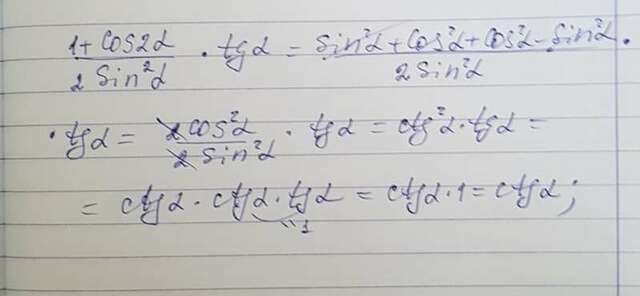 (1 + cos2α)/(2 sin²α) · tgα = (sin²α + cos²α + cos²α - sin²α)/(2 sin²α) ·
· tgα = (2 cos²α)/(2 sin²α) · tgα = ctg²α · tgα =
= ctgα · ctgα · tgα = ctgα · 1 = ctgα;
"1